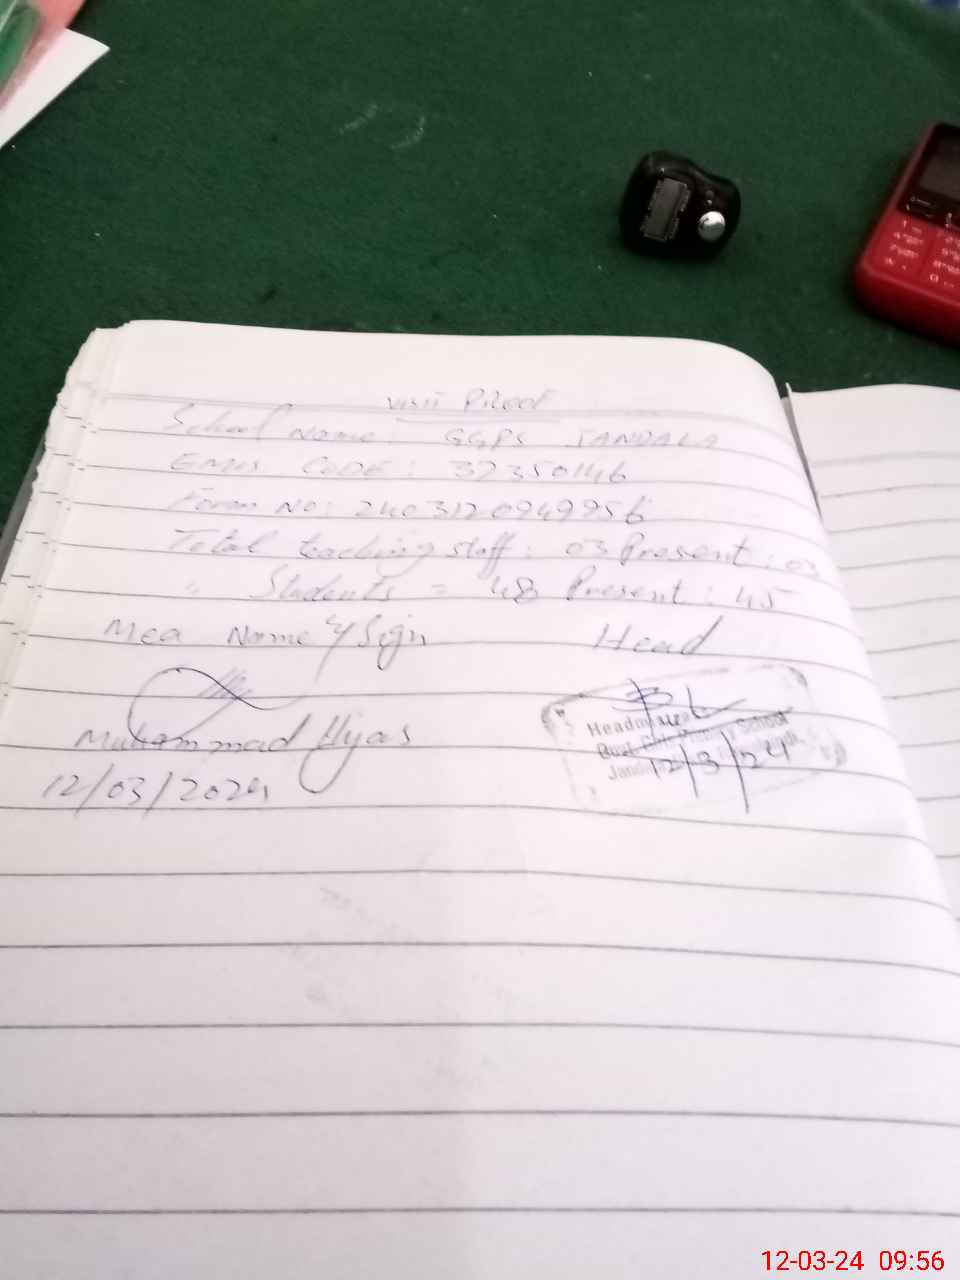 Visit Proof
School Name: GGPS JANDALA
EMIS CODE: 32350146
Form No: 2403120949956
Total teaching staff: 03 Present: 03
" Students = 48 Present: 45
Mea Name & Sign Head
Muhammad Ilyas
12/03/2024
Headmistress
Govt. Girls Primary School
12/3/24
12-03-24 09:56